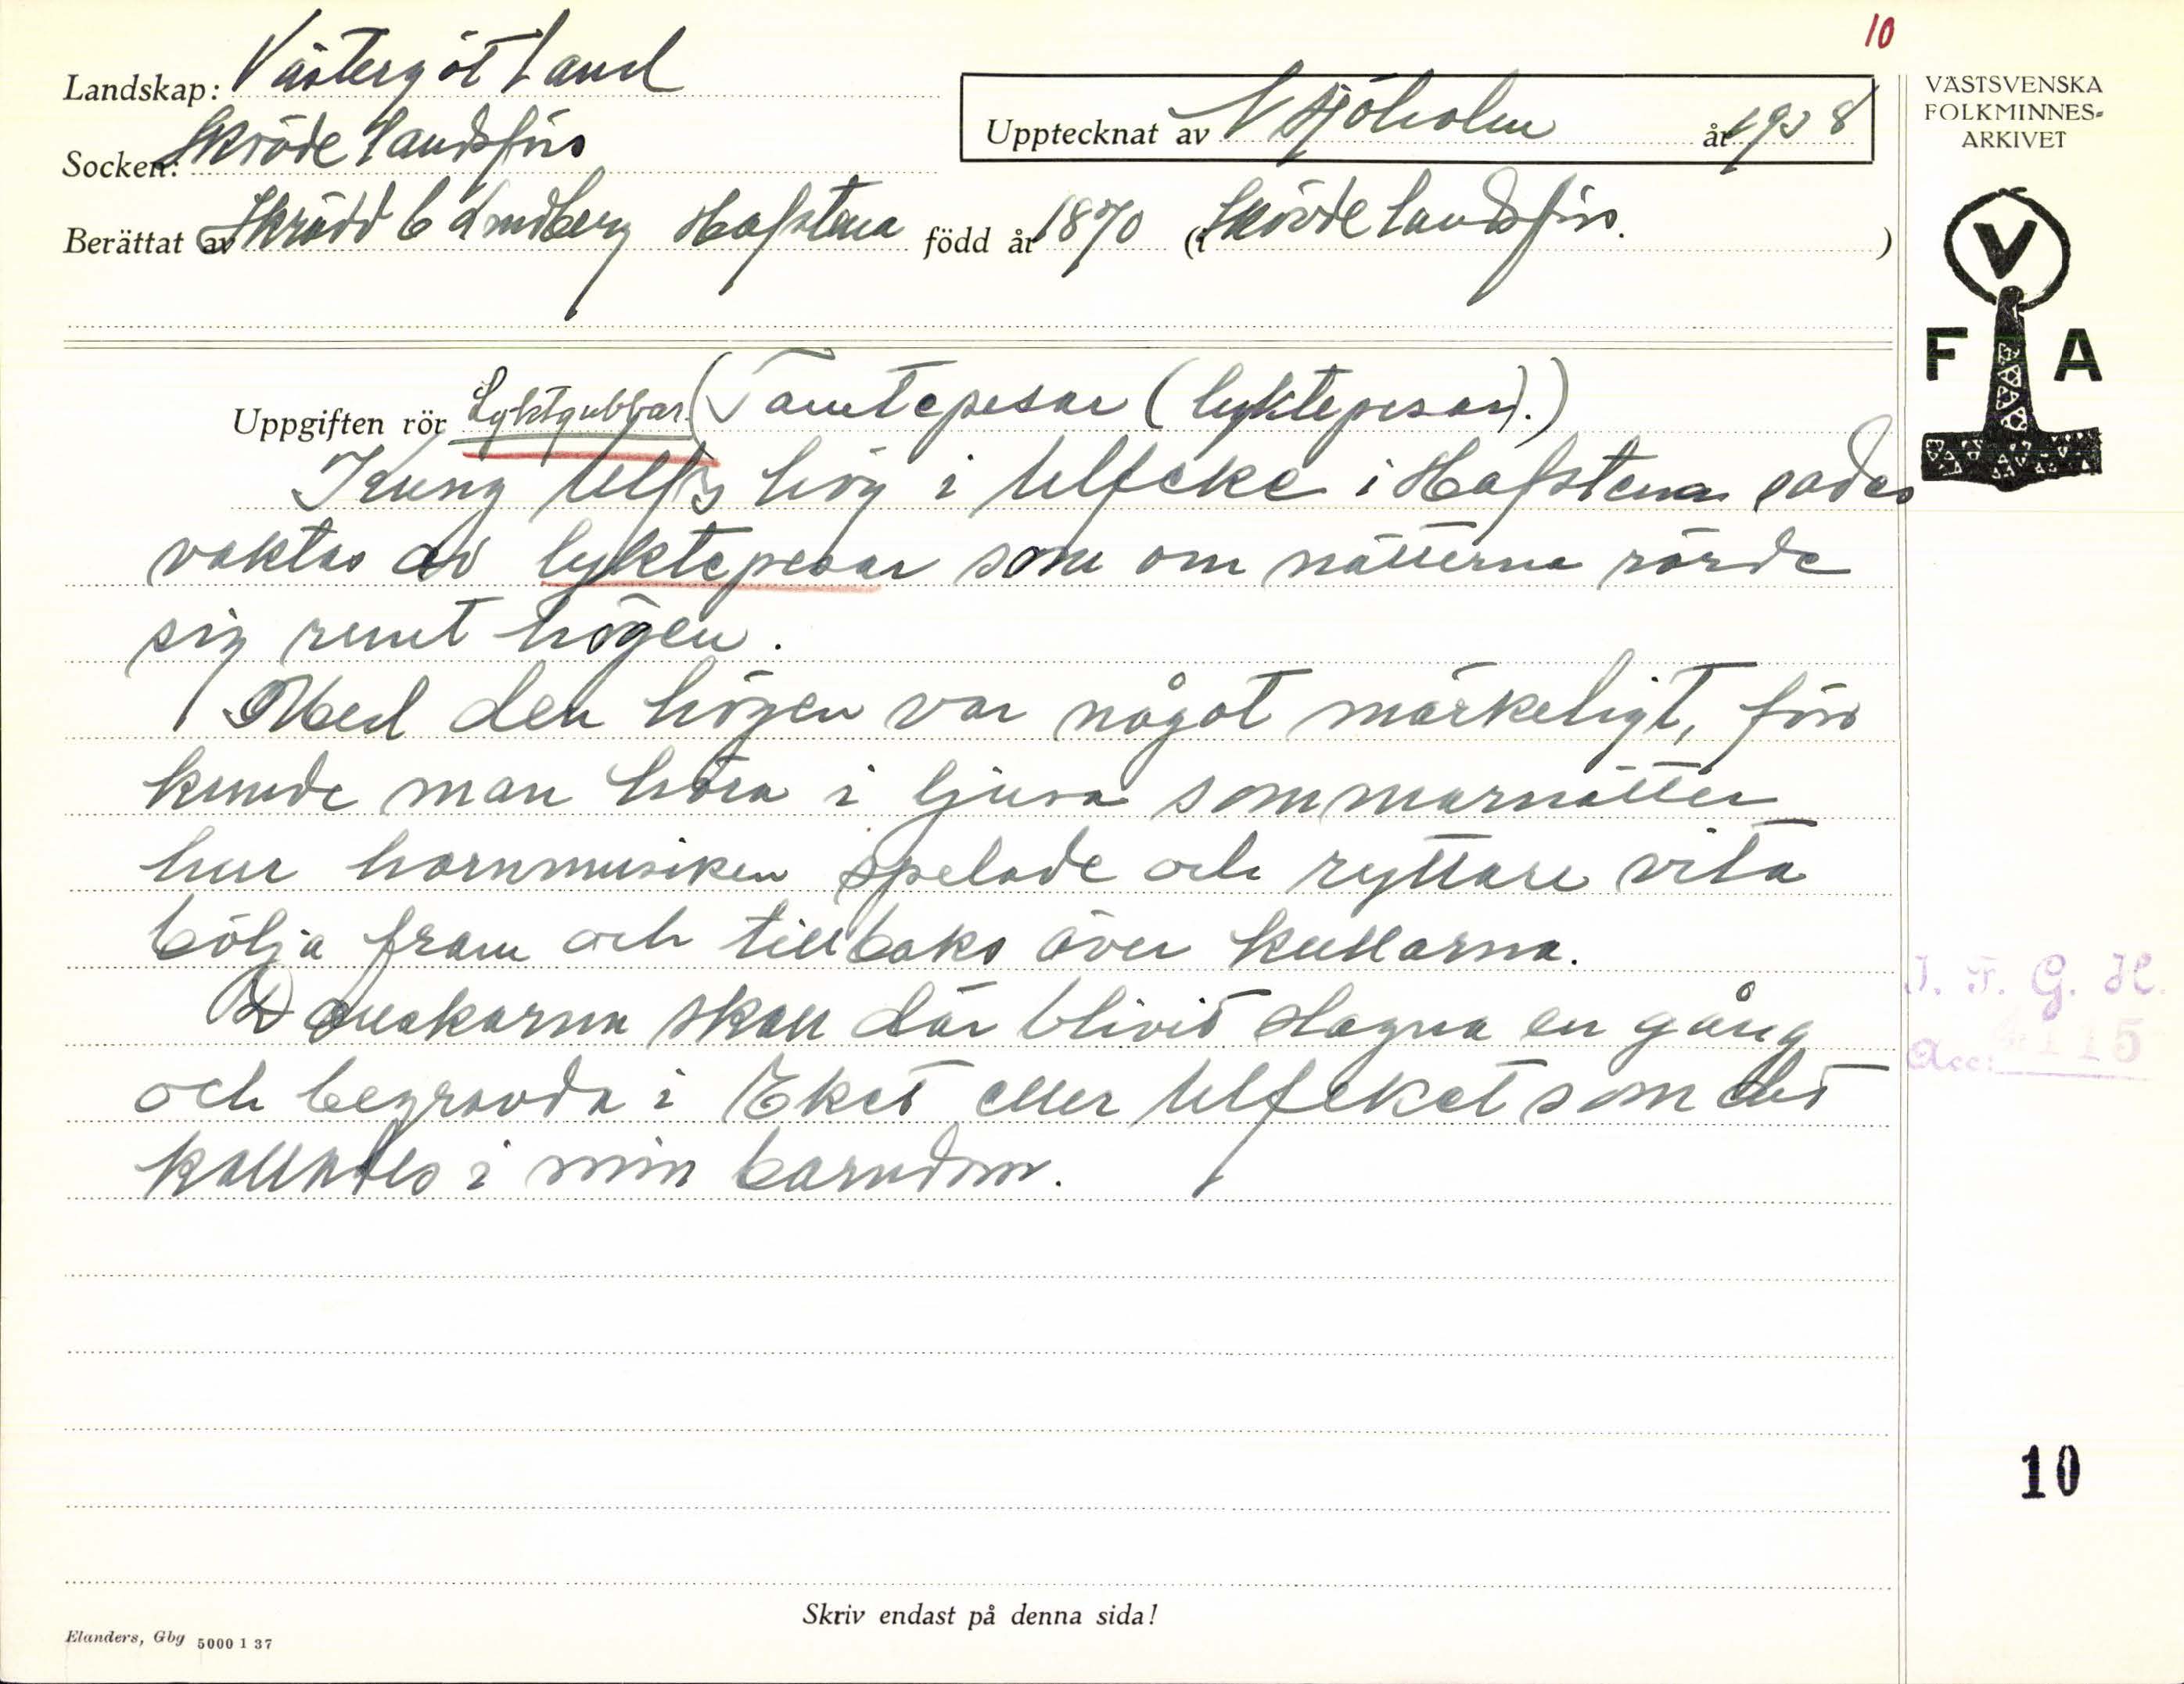 10
Landskap: Västergötland
Socken: Skövde landsförs
Upptecknat av N Sjöholm år 1938
VÄSTSVENSKA
FOLKMINNES-
ARKIVET
Berättat av Skrädd C Lundberg Hafstena född år 1870 (i Skövde landsförs. )
V
F A
Uppgiften rör Lyktgubbar. (Tomtepesar (lyktepesar).)
Kung Ulfs hög i Ulfeke i Hafstena sades
vaktas av lyktepesar som om nätterna rörde
sig runt högen.
Med den högen var något märkeligt, förs
kunde man höra i ljusa sommarnätter
hur hornmusiken spelade och ryttare vita
bölja fram och tillbaks över kullarna.
Danskarna skall där blivit slagna en gång
och begravda i Eket eller Ulfeket som det
kallades i min barndom.
I. F. G. H.
Acc: 115
10
Skriv endast på denna sida!
Elanders, Gbg 5000 1 37